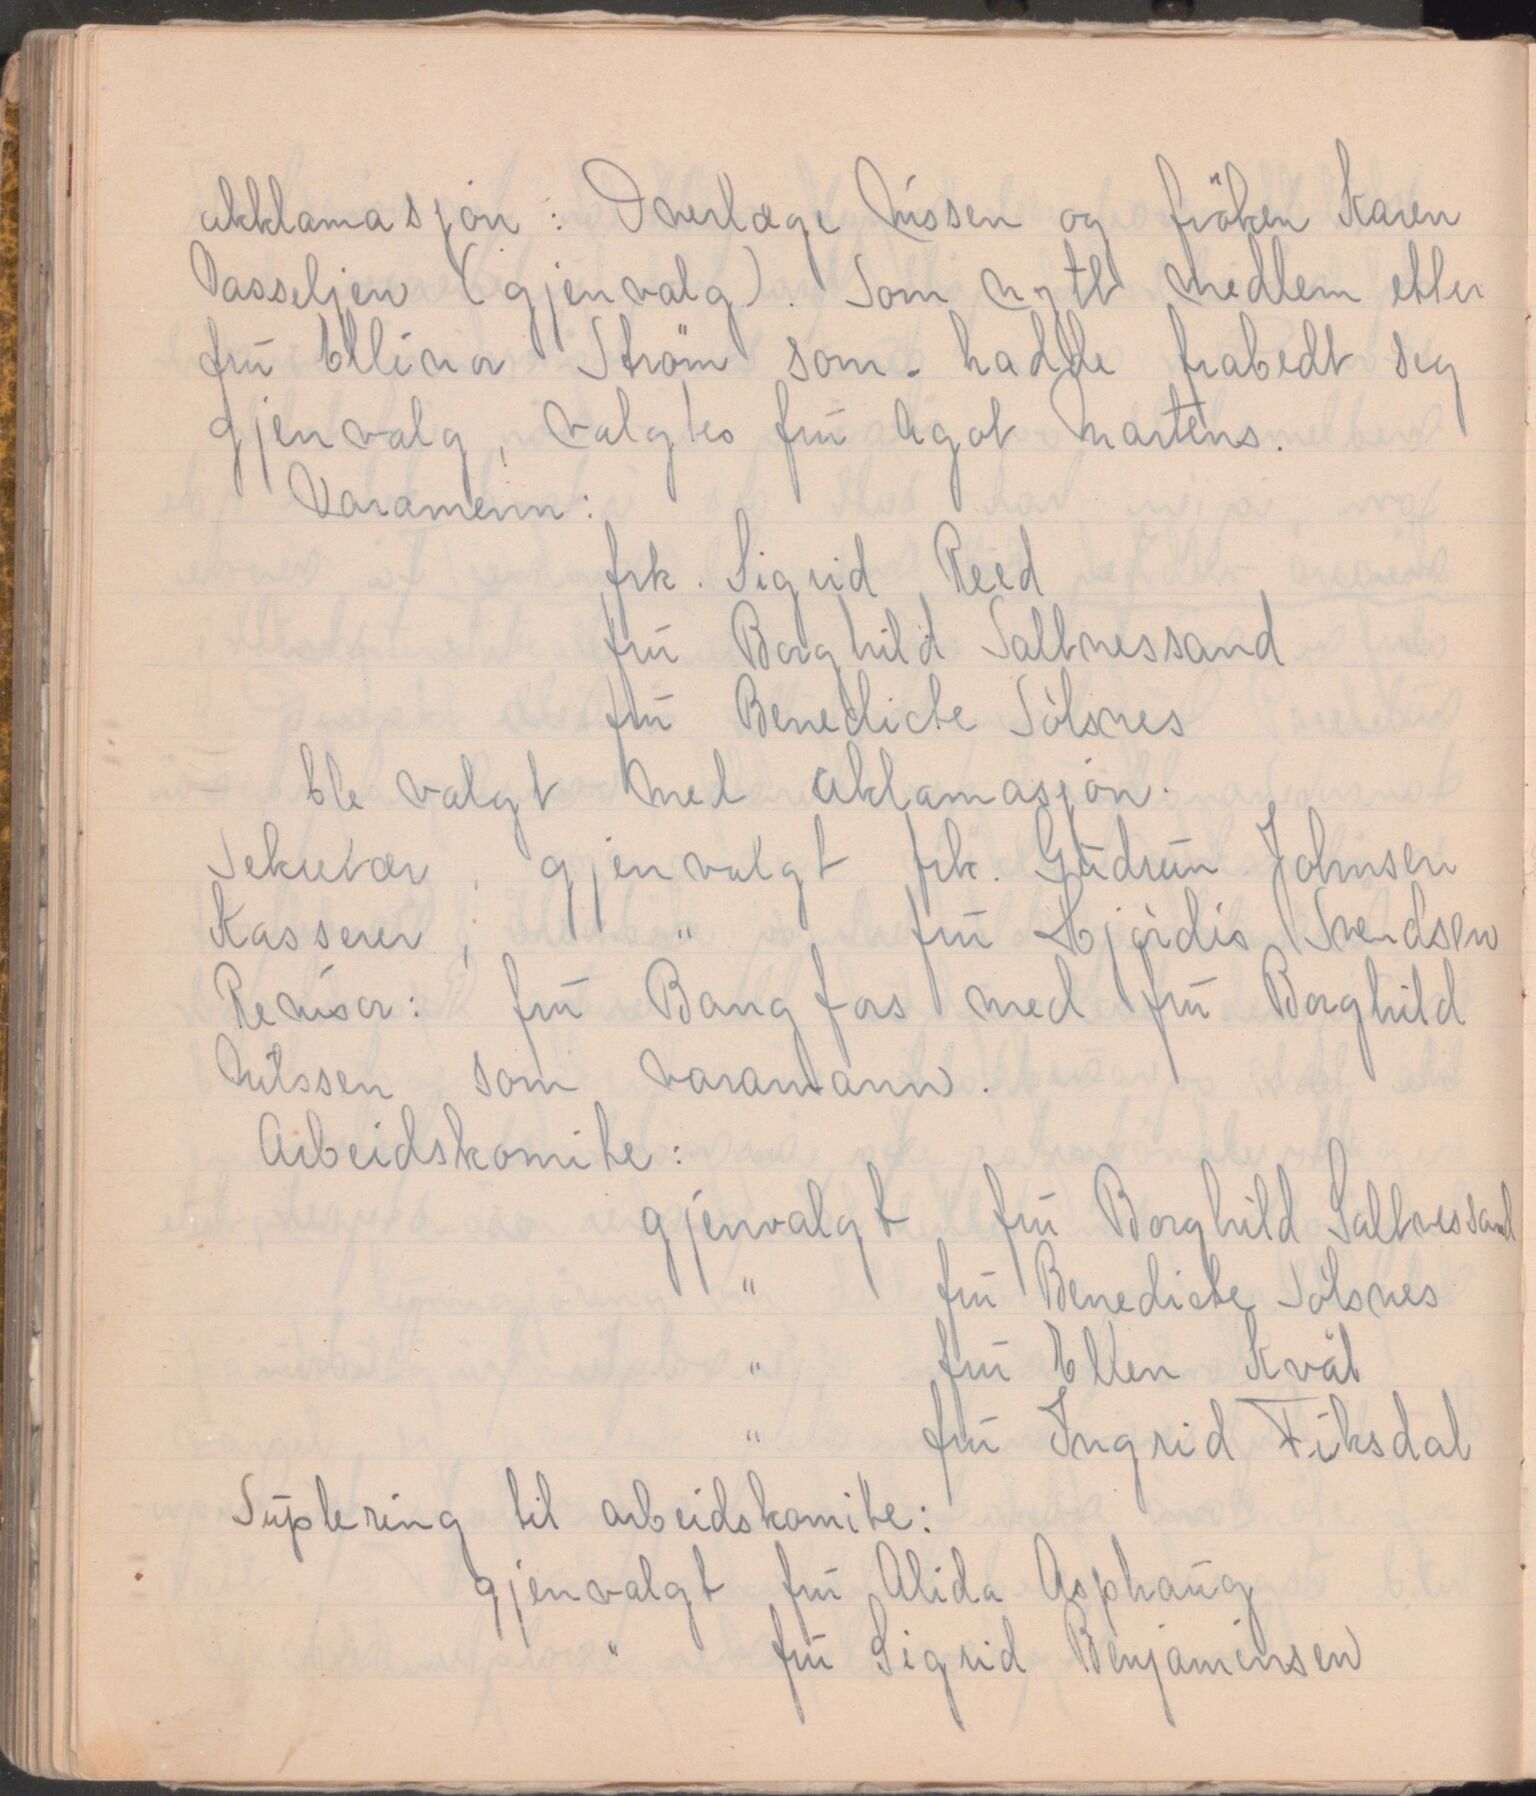 akklamasjon: Overlæge Nissen og fröken Karen
Vasseljen (gjenvalg). Som nytt medlem etter
fru Ellinor Ström som hadde frabedt seg
gjenvalg, valgtes fru Agot Martens.
Varamenn:
frk. Sigrid Reed
fru Borghild Saltnessand
fru Benedicte Sólsnes
ble valgt med aklamasjon.
Sekretær, gjenvalgt frk. Gudrun Johnsen
Kasserer, " fru Hjördis Svendsen
Revisor: fru Bangfors med fru Borghild
Nilssen som varamann.
Arbeidskomite:
gjenvalgt fru Borghild Saltnessand
" fru Benedicte Sólsnes
" fru Ellen Kvål
" fru Ingrid Fiksdal
Suplering til arbeidskomite:
gjenvalgt fru Alida Asphaug
" fru Sigrid Benjaminsen